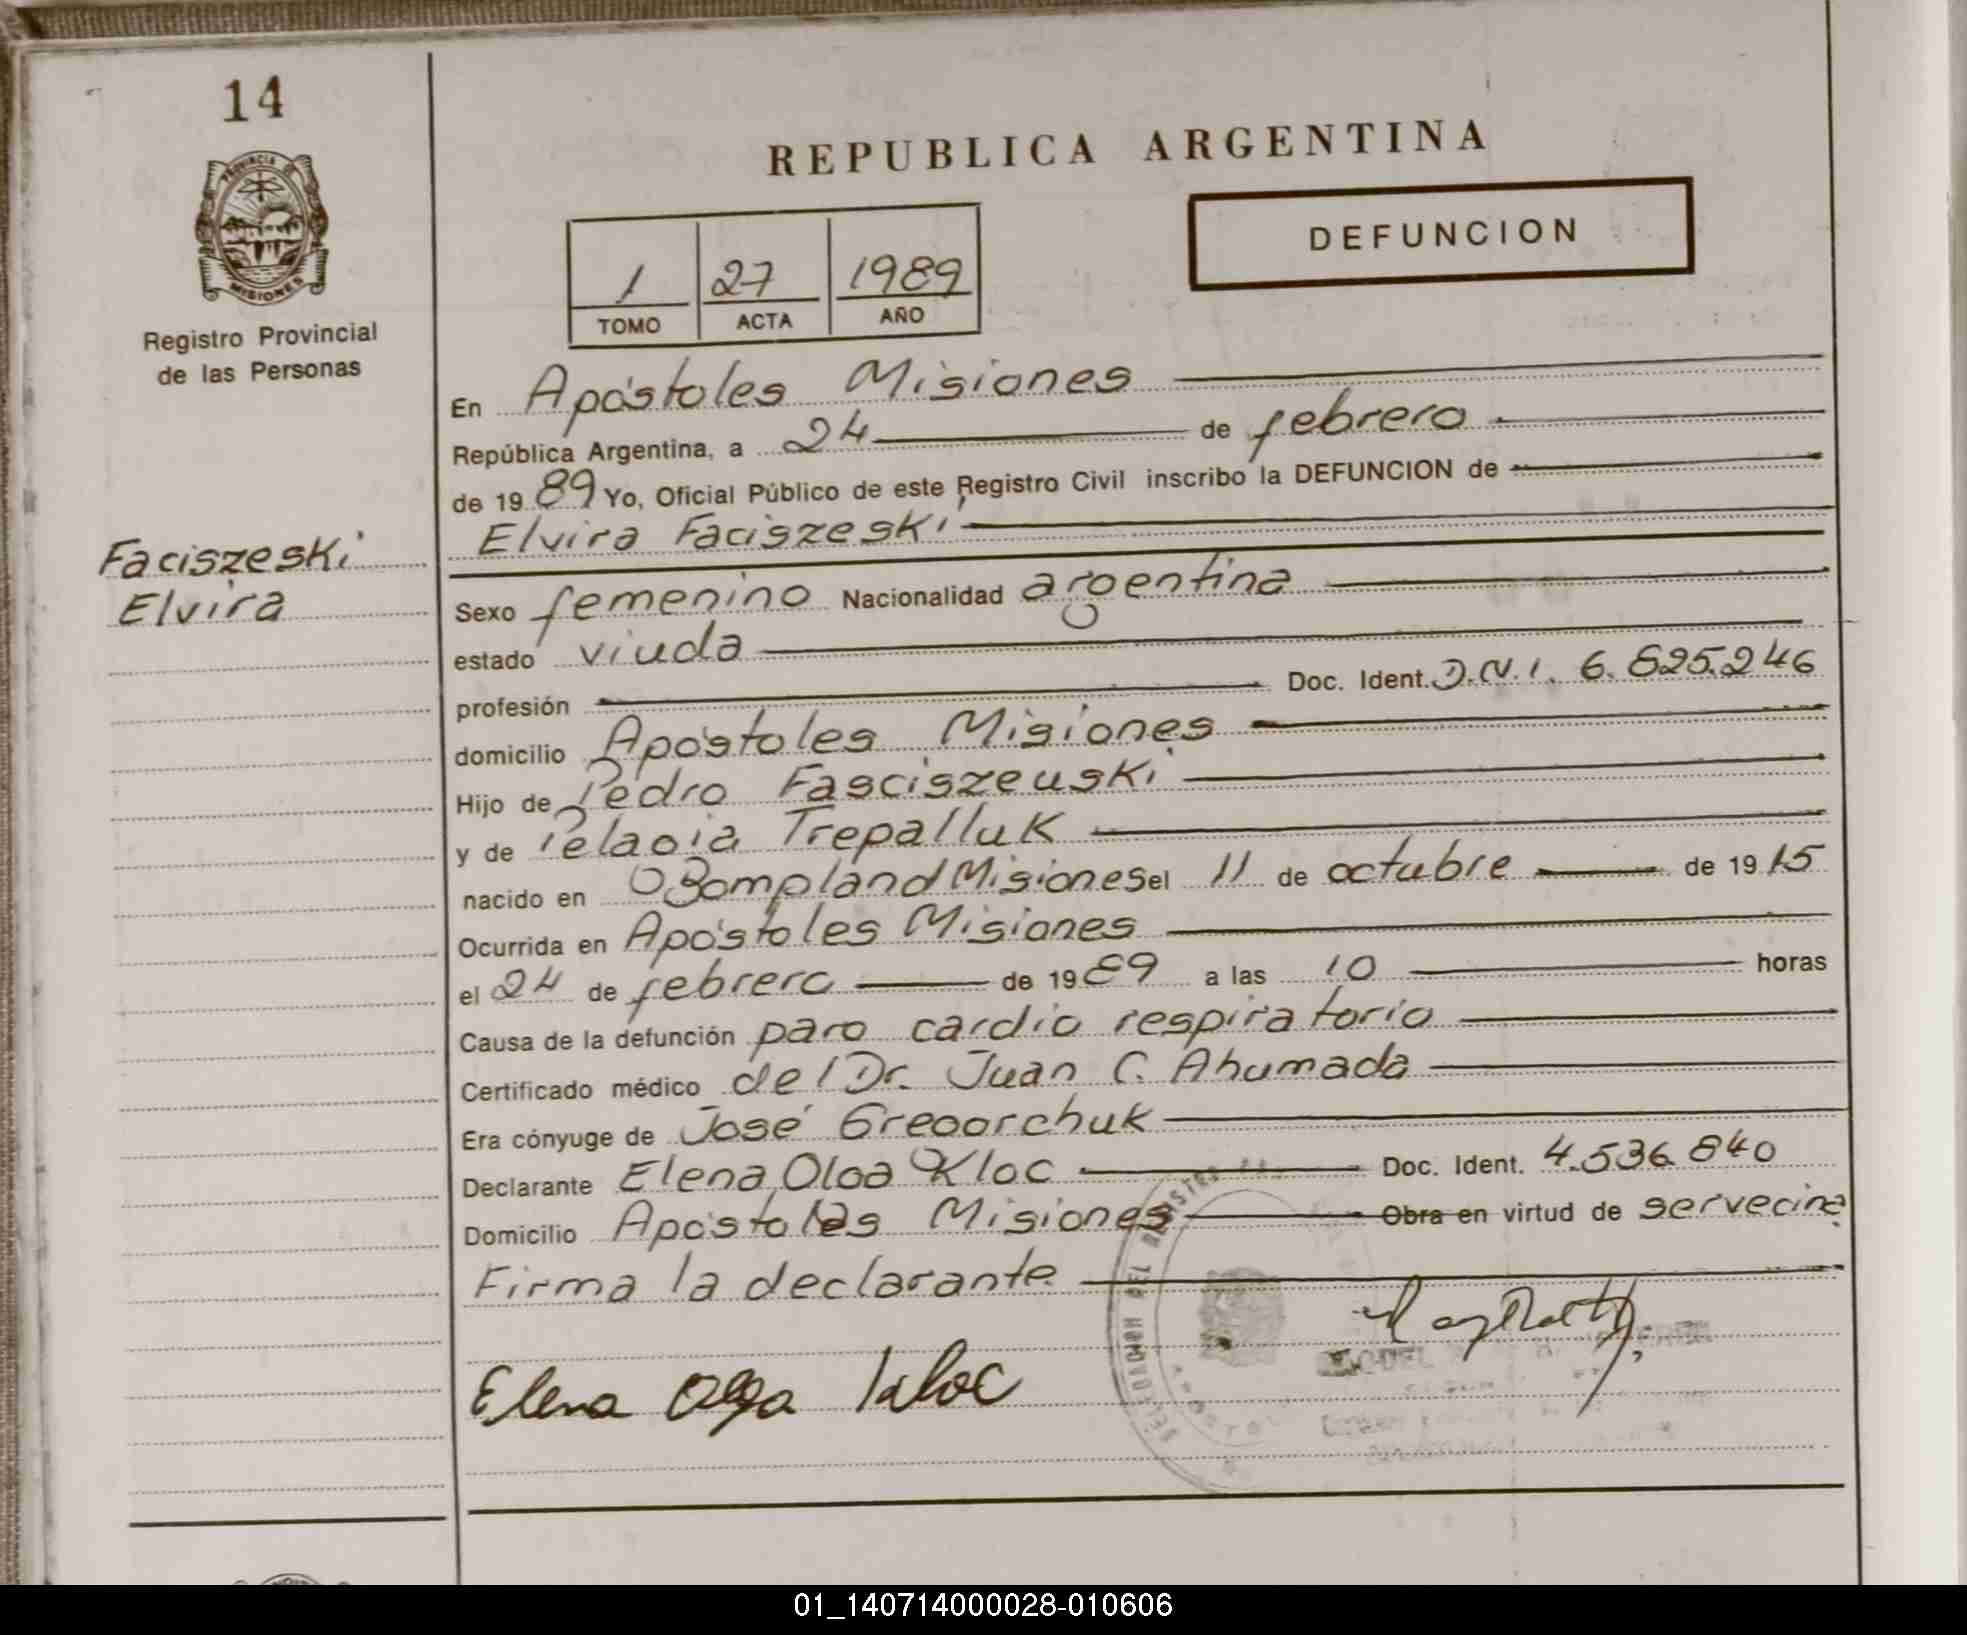 14
REPUBLICA ARGENTINA
PROVINCIA DE
MISIONES
DEFUNCION
1 27 1989
TOMO ACTA AÑO
Registro Provincial
de las Personas
En Apóstoles Misiones
República Argentina, a 24 de febrero
de 1989 Yo, Oficial Público de este Registro Civil inscribo la DEFUNCION de
Elvira Faciszeski
Faciszeski
Elvira
Sexo femenino Nacionalidad argentina
estado viuda
profesión Doc. Ident. D.N.I. 6.625.246
domicilio Apóstoles Misiones
Hijo de Pedro Fasciszeuski
y de Pelagia Trepalluk
nacido en Bompland Misiones el 11 de octubre de 1915
Ocurrida en Apóstoles Misiones
el 24 de febrero de 1989 a las 10 horas
Causa de la defunción paro cardio respiratorio
Certificado médico del Dr. Juan C. Ahumada
Era cónyuge de José Gregorchuk
Declarante Elena Olga Kloc Doc. Ident. 4.536.840
Domicilio Apóstoles Misiones Obra en virtud de ser vecina
Firma la declarante
Elena Olga Kloc
01_140714000028-010606